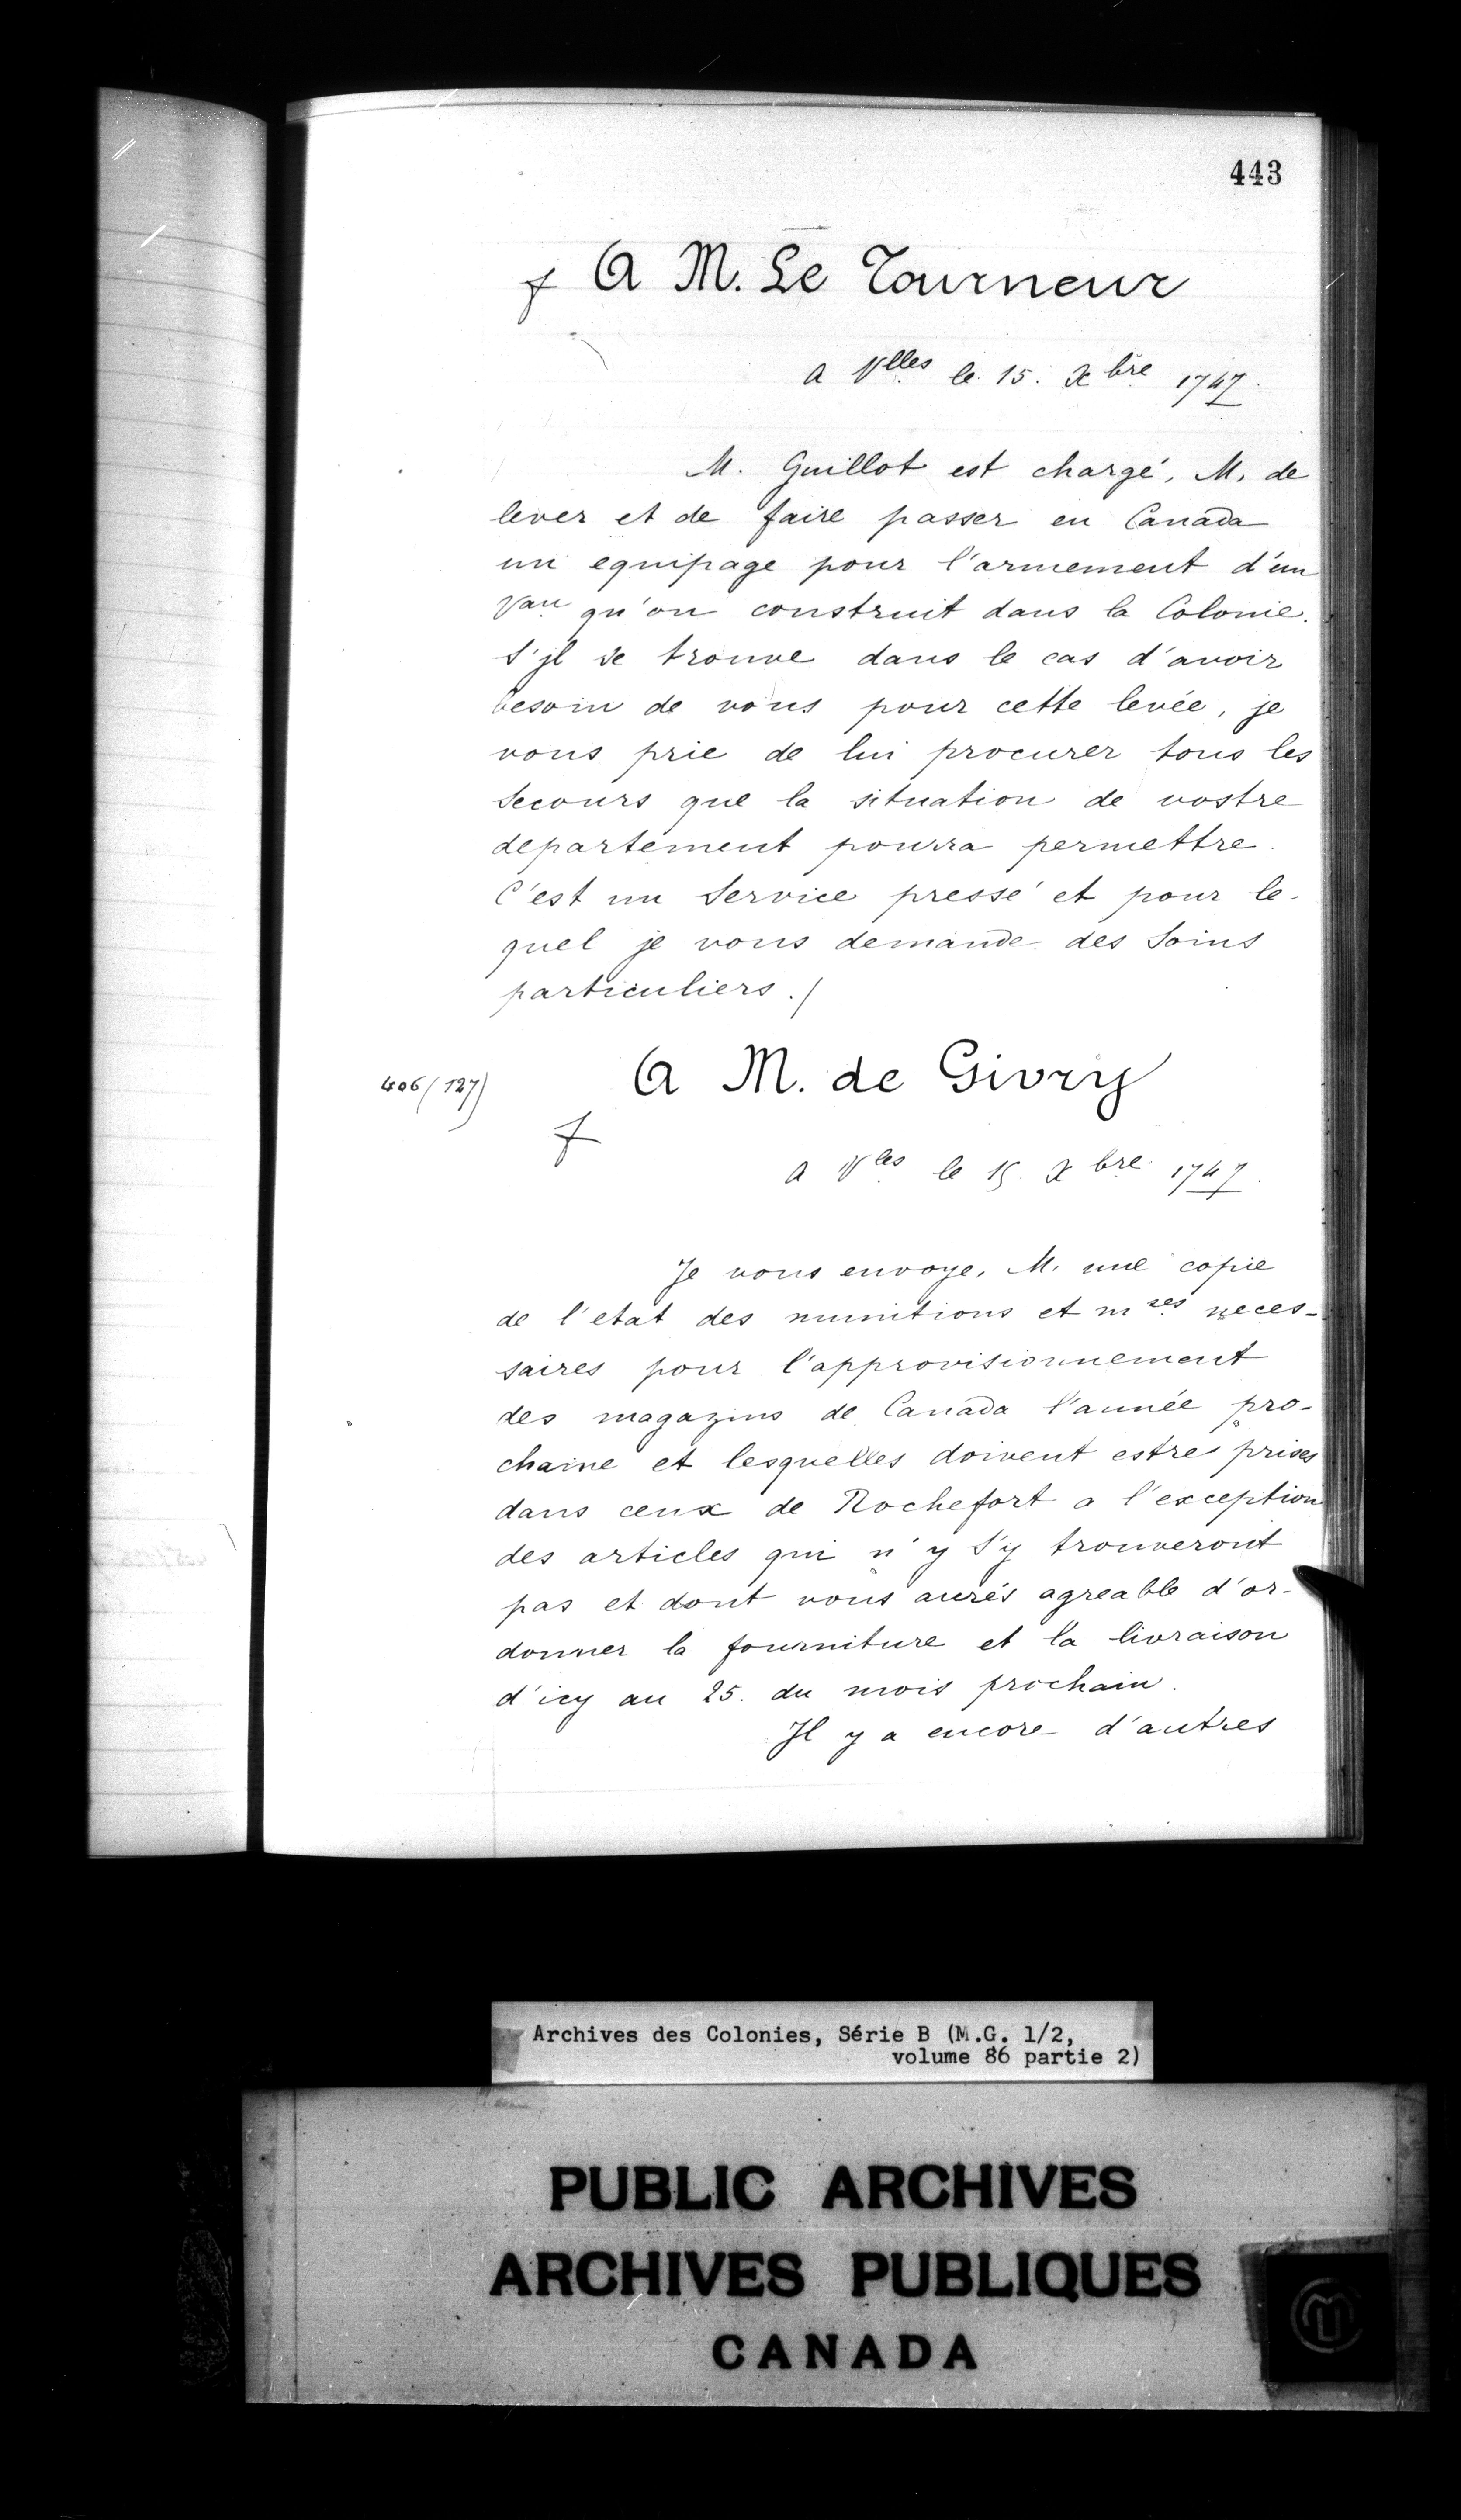 443
f A M. Le Tourneur
A Vlles le 15. Xbre 1747.
M. Guillot est chargé, M. de
lever et de faire passer en Canada
un equipage pour l'armement d'un
Vau qu'on construit dans la Colonie.
S'jl se trouve dans le cas d'avoir
besoin de vous pour cette levée, je
vous prie de lui procurer tous les
Secours que la situation de vostre
departement pourra permettre.
C'est un Service pressé et pour le-
quel je vous demande des Soins
particuliers./
406 (127)
A M. de Givry
f
A Vles le 15. Xbre 1747.
Je vous envoye, M. une copie
de l'etat des munitions et mses neces-
saires pour l'approvisionnement
des magazins de Canada l'année pro-
chaine et lesquelles doivent estre prises
dans ceux de Rochefort a l'exception
des articles qui n'y S'y trouveront
pas et dont vous aurés agreable d'or-
donner la fourniture et la livraison
d'icy au 25. du mois prochain.
Jl y a encore d'autres
Archives des Colonies, Série B (M.G. 1/2,
volume 86 partie 2)
PUBLIC ARCHIVES
ARCHIVES PUBLIQUES
CANADA